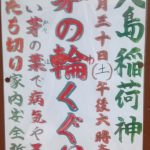 大島稲荷神
月三十日(土)午後六時
茅の輪くぐ
い茅の葉で病気や
たち切り家内安全